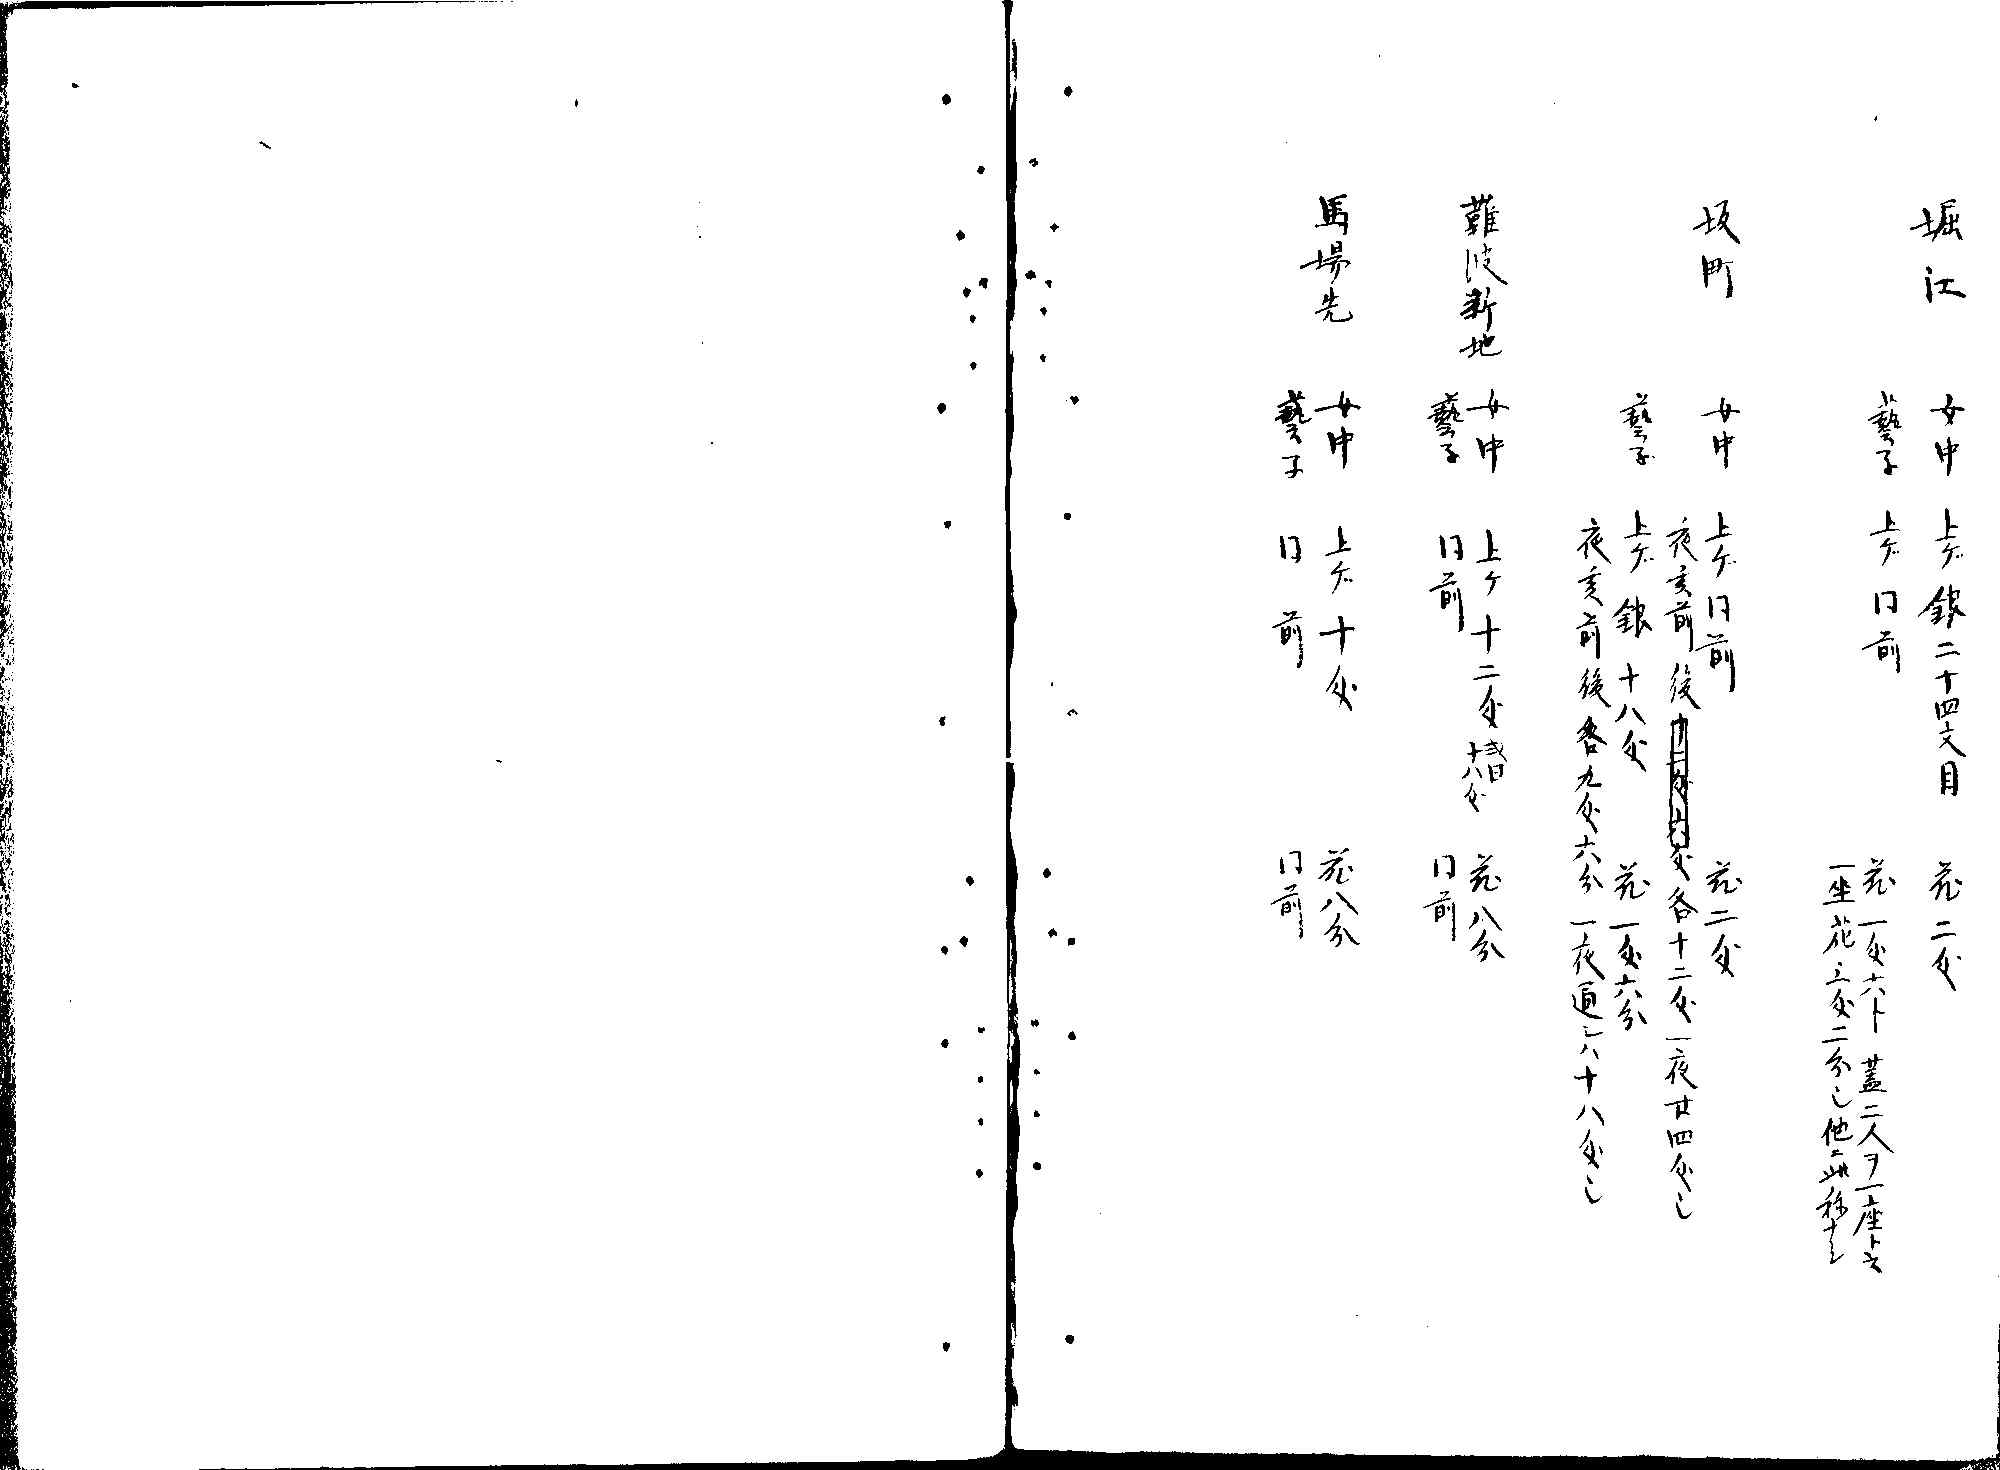 堀江　女中　上ゲ銀二十四文目　花二匁
藝子　上ゲ同前　花一匁六ト　蓋二人ヲ一座ト云
一坐花三匁二分也他ニ此称ナシ
坂町　女中　上ゲ同前　花二匁
夜亥前後　各十二匁一夜廿四匁也
藝子　上ゲ銀十八匁　花一匁六分
夜亥前後各九匁六分一夜通シハ十八匁也
難波新地　女中　上ケ十二匁　昼十八匁　花八分
藝子　同前　同前
馬場先　女中　上ゲ十匁　花八分
藝子　同前　同前